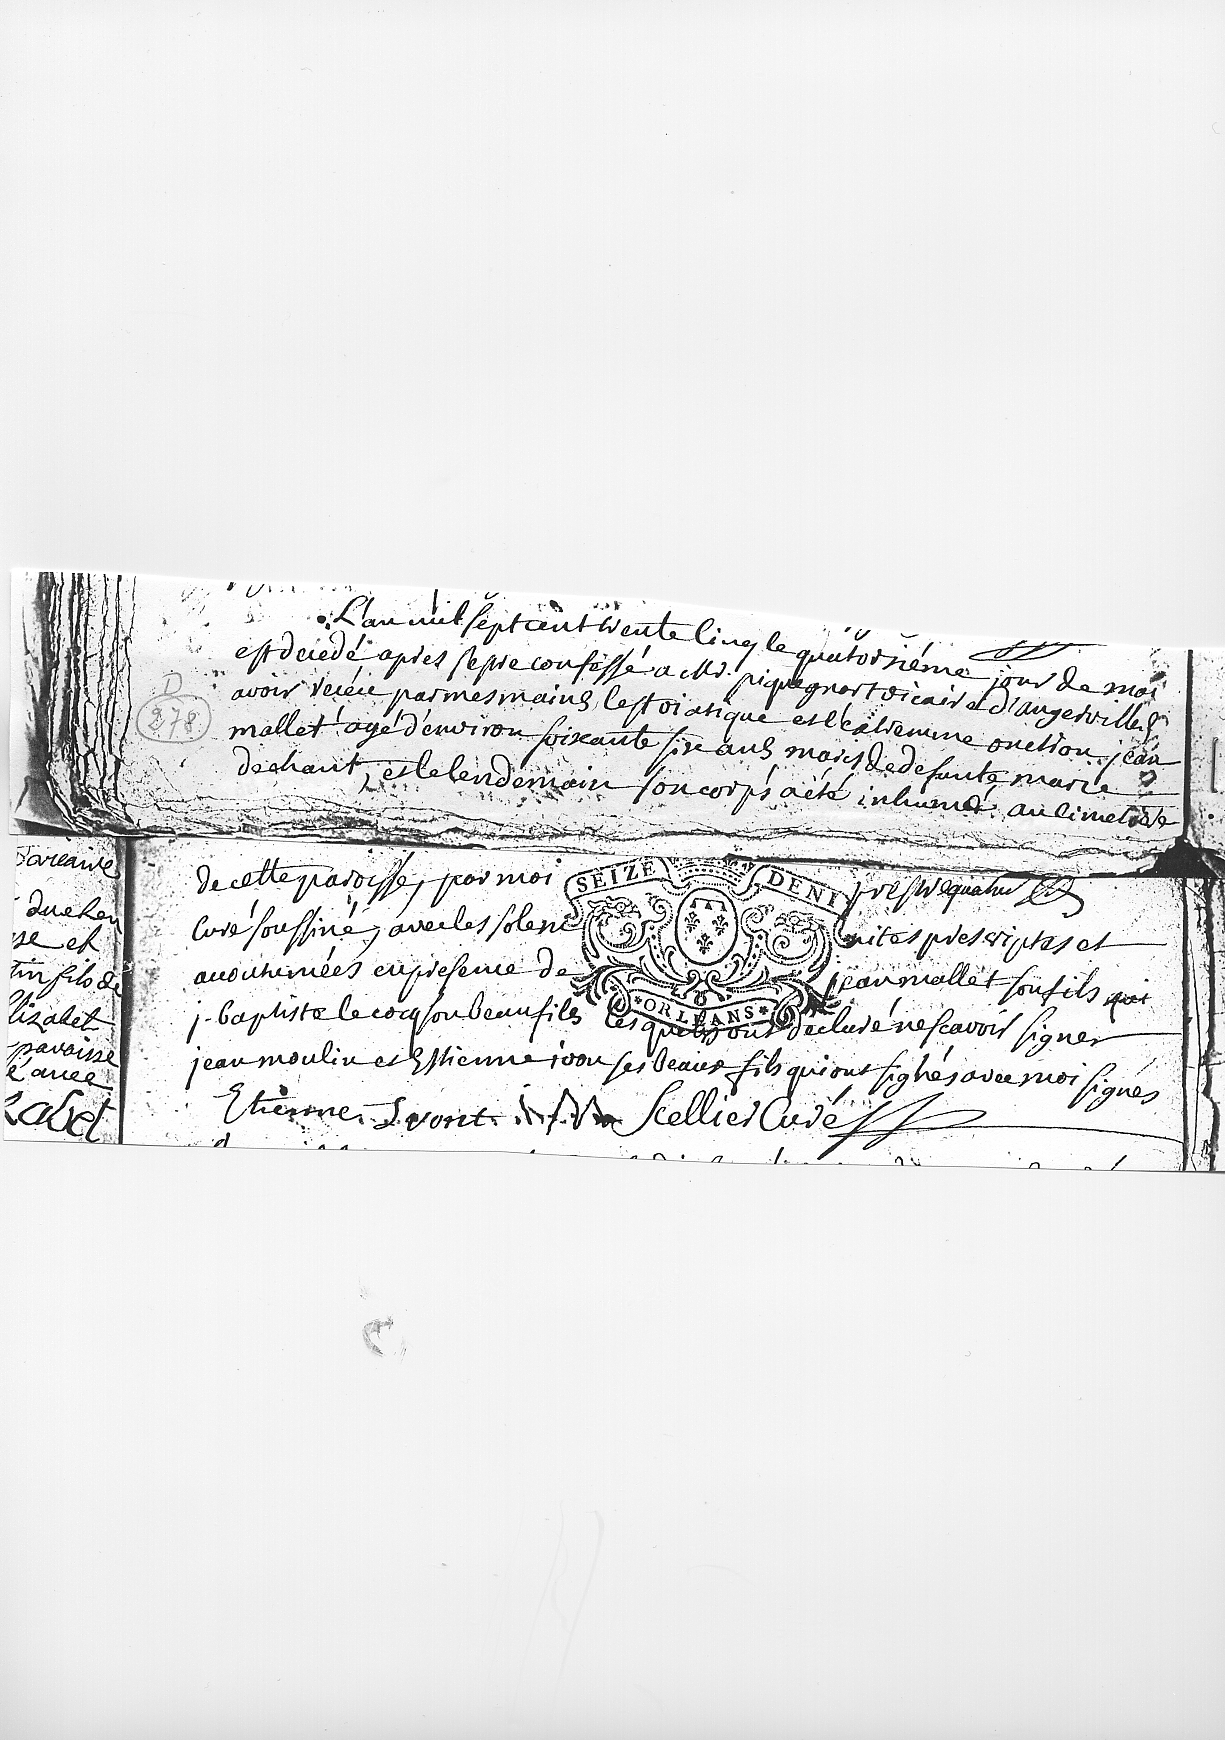 L'an mil sept cent trente cinq le quatorziéme jour de mai
est decedé apres s'estre confessé a Mr. piquegnot vicaire d'angerville &
avoir reçeu par mes mains le st viatique et l'extremme onction jean
mallet agé d'environ soixante six ans mari de defunte marie
dechant, et le lendemain son corps a été inhumé au cimetière
D
278
de cette paroisse, par moi prestre
curé soussiné, avec les solemnites prescriptes et
acoutumées en presence de jean mallet son fils
j. baptiste le cocq son beau fils lesquels ont declaré ne scavoir signer
jean moulin et Estienne ivon ses beaux fils qui ont signés avec moi signés
Etienne Ivont Scellier Curé
SEIZE DENI
ORLEANS
duchen
se et
tin fils de
lizabet
paroisse